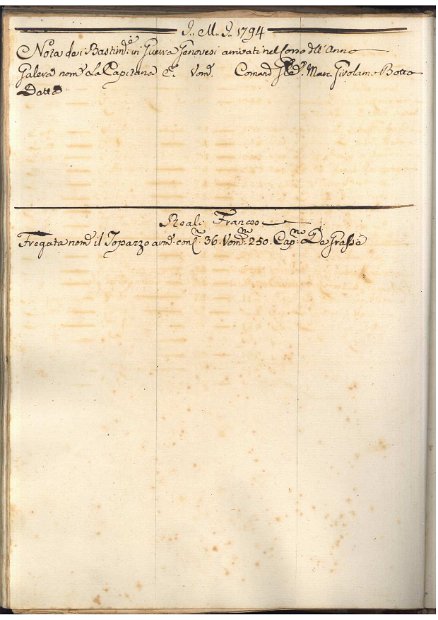 J. M. J. 1794
Nota de i Bastimti in Guerra Genovesi arrivati nel Corso dell'Anno
Galera nomta la Capitana Cni Vomi Comand Mar. Girolamo
Reali Francesi
Fregata nomta il Topazzo armta con 36. Vomni 250. Capno De Grasse